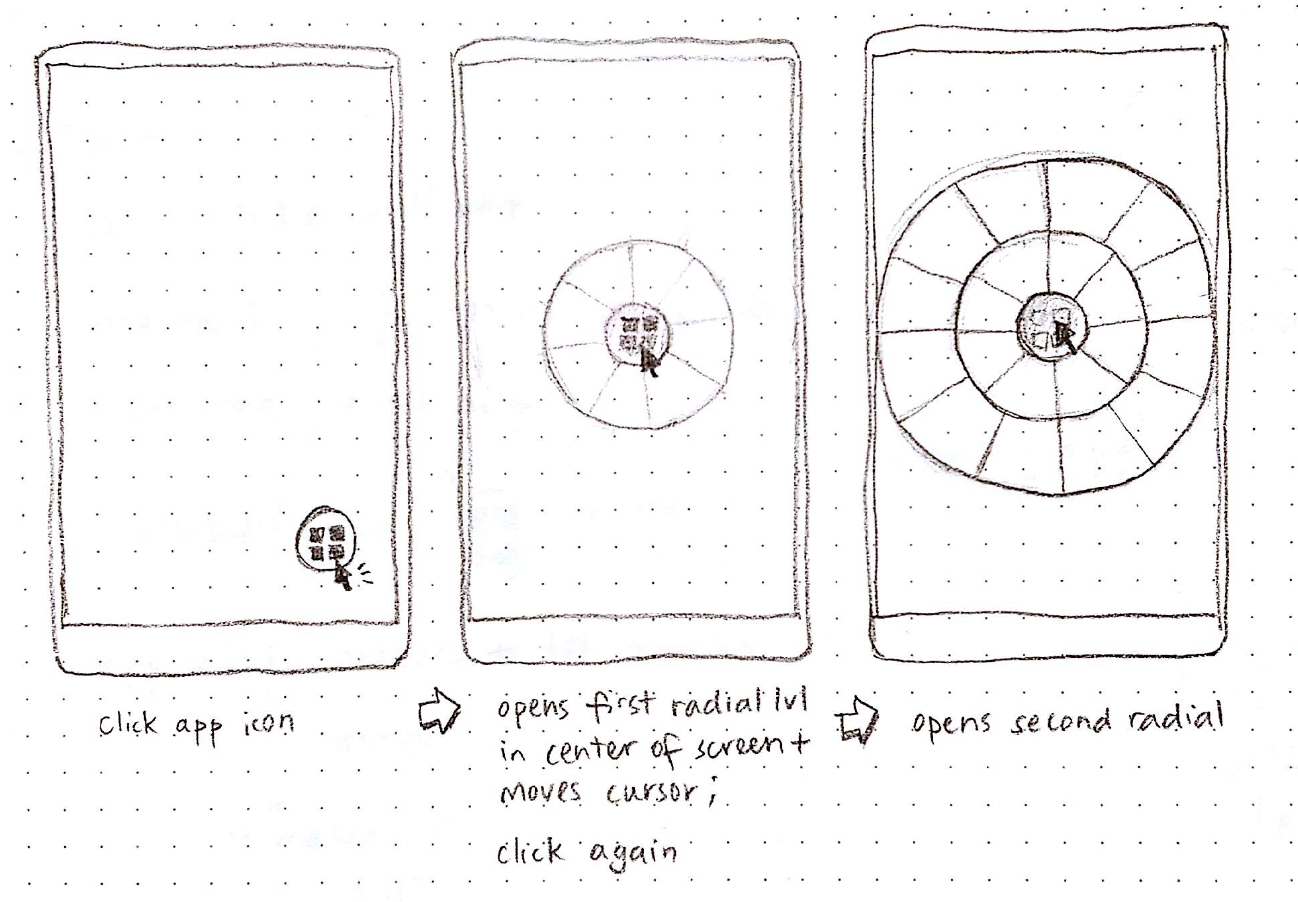 click app icon
opens first radial lvl
in center of screen +
moves cursor;
click again
opens second radial